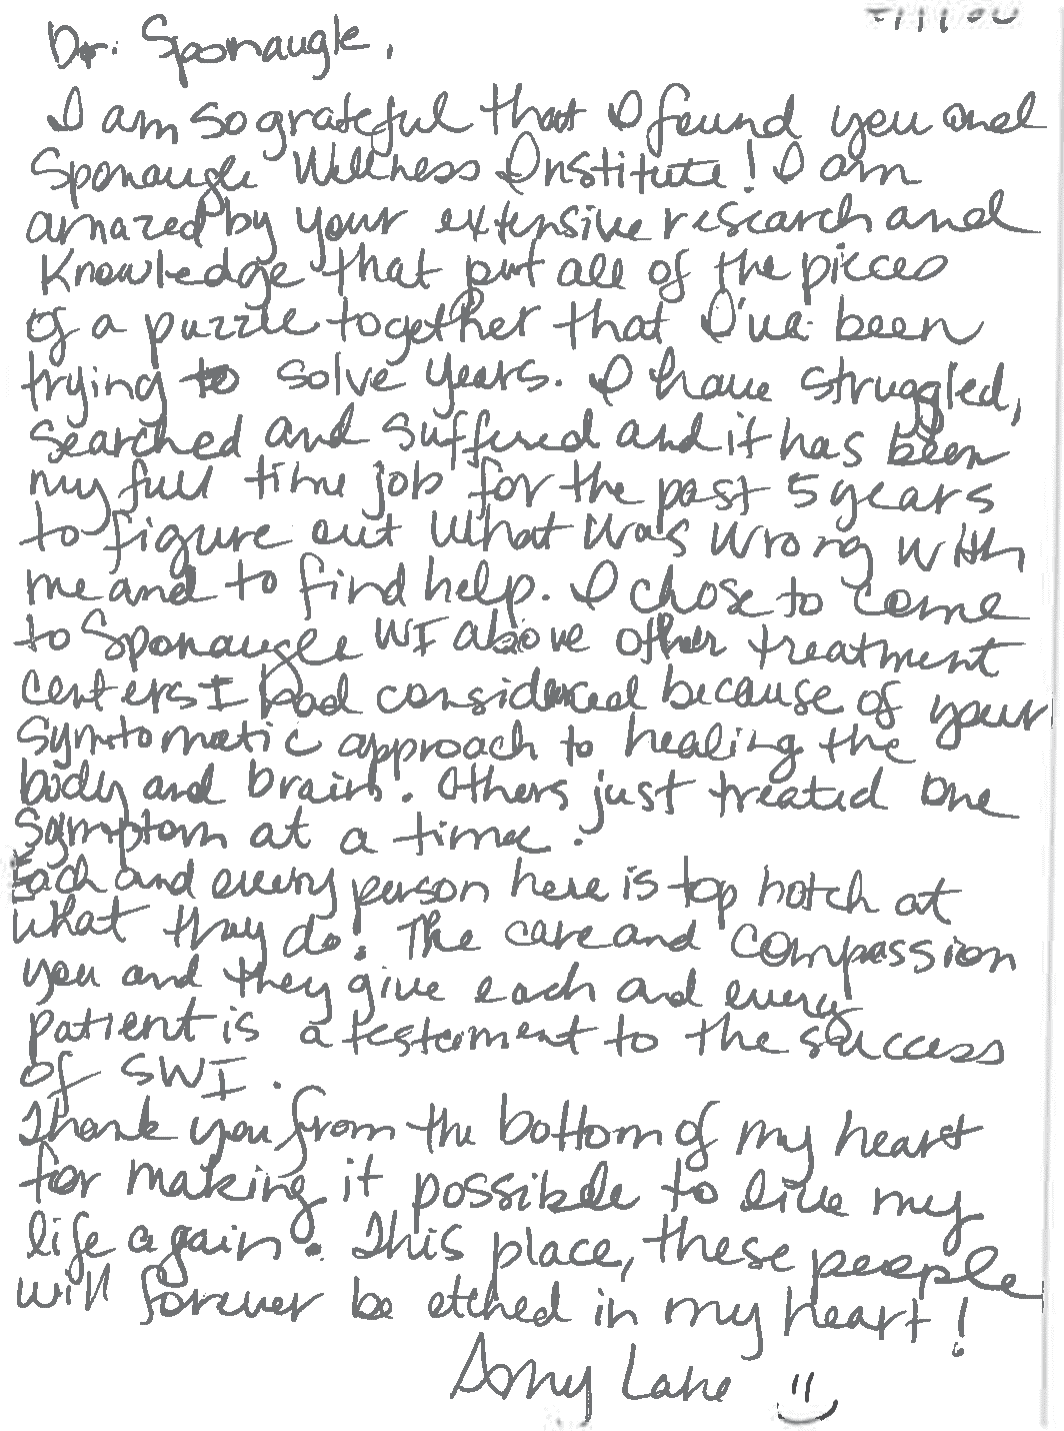 Dr. Sponaugle,
I am so grateful that I found you and
Sponaugle Wellness Institute! I am
amazed by your extensive research and
knowledge that put all of the pieces
of a puzzle together that I've been
trying to solve years. I have struggled,
searched and suffered and it has been
my full time job for the past 5 years
to figure out what was wrong with
me and to find help. I chose to come
to Sponaugle WI above other treatment
centers I had considered because of your
symtomatic approach to healing the
body and brain. Others just treated one
symptom at a time.
Each and every person here is top notch at
what they do! The care and compassion
you and they give each and every
patient is a testament to the success
of SWI.
Thank you from the bottom of my heart
for making it possible to live my
life again! This place, these people
will forever be etched in my heart!
Amy Lane